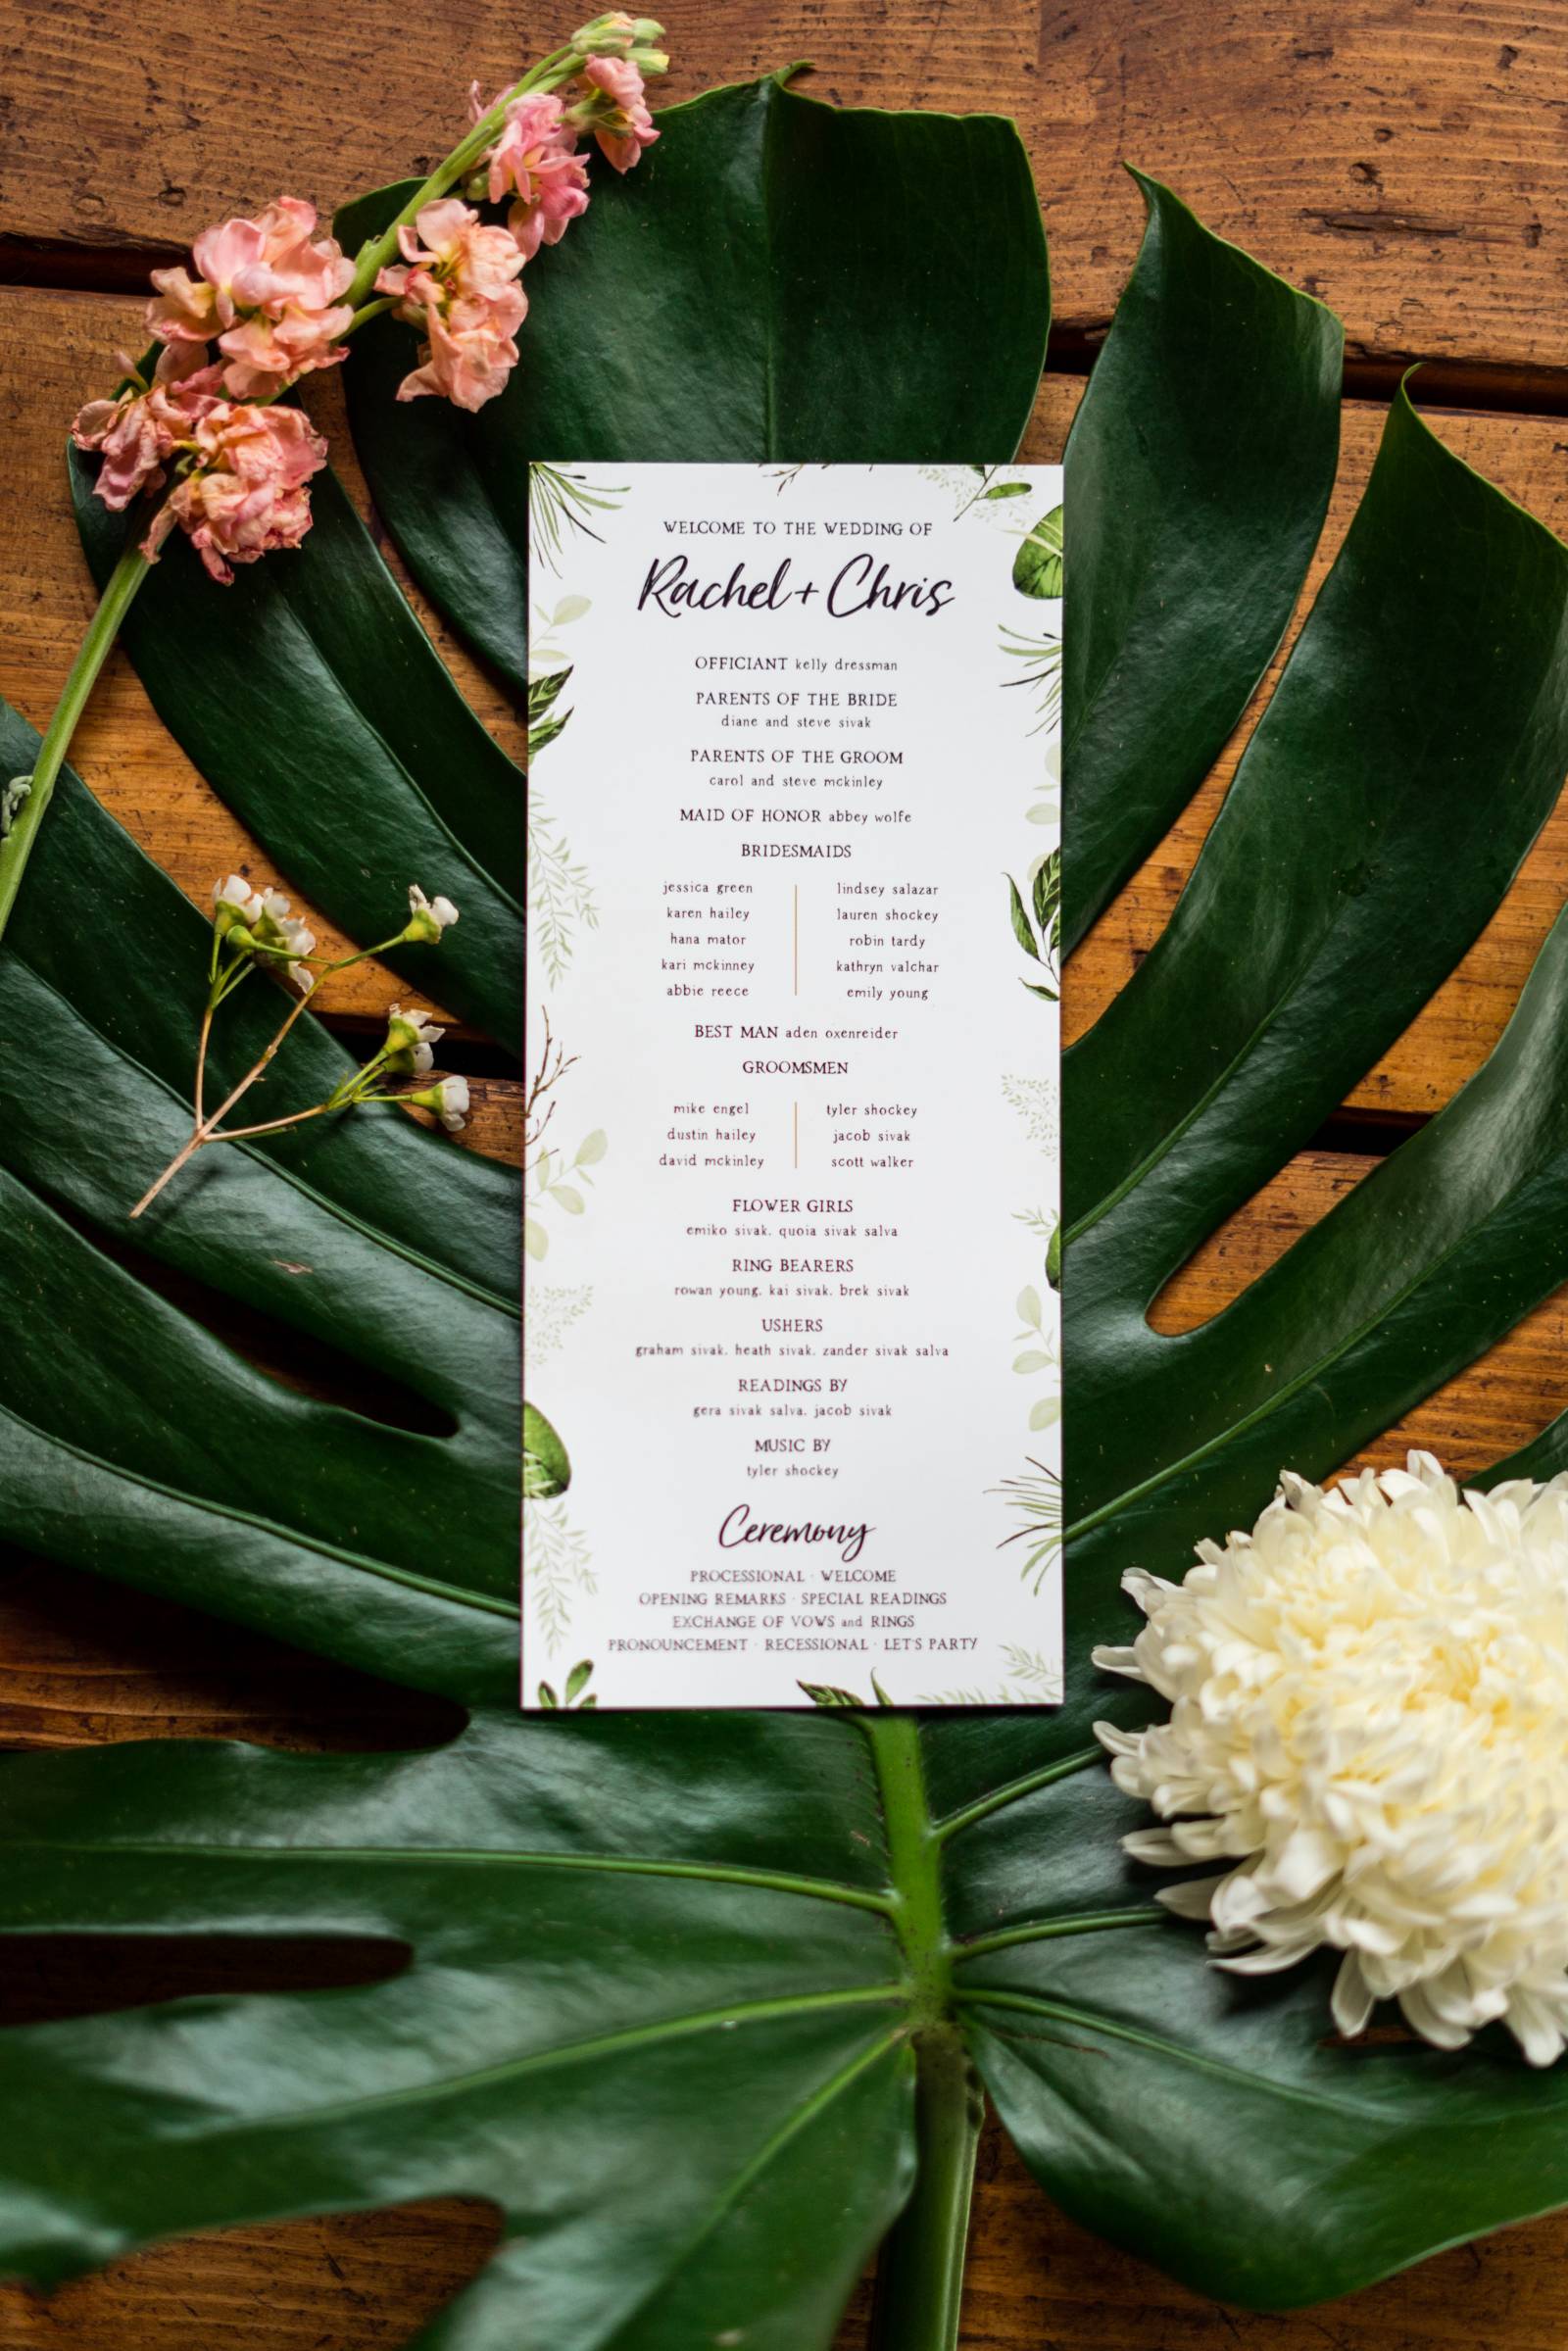 WELCOME TO THE WEDDING OF
Rachel + Chris
OFFICIANT kelly dressman
PARENTS OF THE BRIDE
diane and steve sivak
PARENTS OF THE GROOM
carol and steve mckinley
MAID OF HONOR abbey wolfe
BRIDESMAIDS
jessica green
karen hailey
hana mator
kari mckinney
abbie reece
lindsey salazar
lauren shockey
robin tardy
kathryn valchar
emily young
BEST MAN aden oxenreider
GROOMSMEN
mike engel
dustin hailey
david mckinley
tyler shockey
jacob sivak
scott walker
FLOWER GIRLS
emiko sivak, quoia sivak salva
RING BEARERS
rowan young, kai sivak, brek sivak
USHERS
graham sivak, heath sivak, zander sivak salva
READINGS BY
gera sivak salva, jacob sivak
MUSIC BY
tyler shockey
Ceremony
PROCESSIONAL · WELCOME
OPENING REMARKS · SPECIAL READINGS
EXCHANGE OF VOWS and RINGS
PRONOUNCEMENT · RECESSIONAL · LET'S PARTY